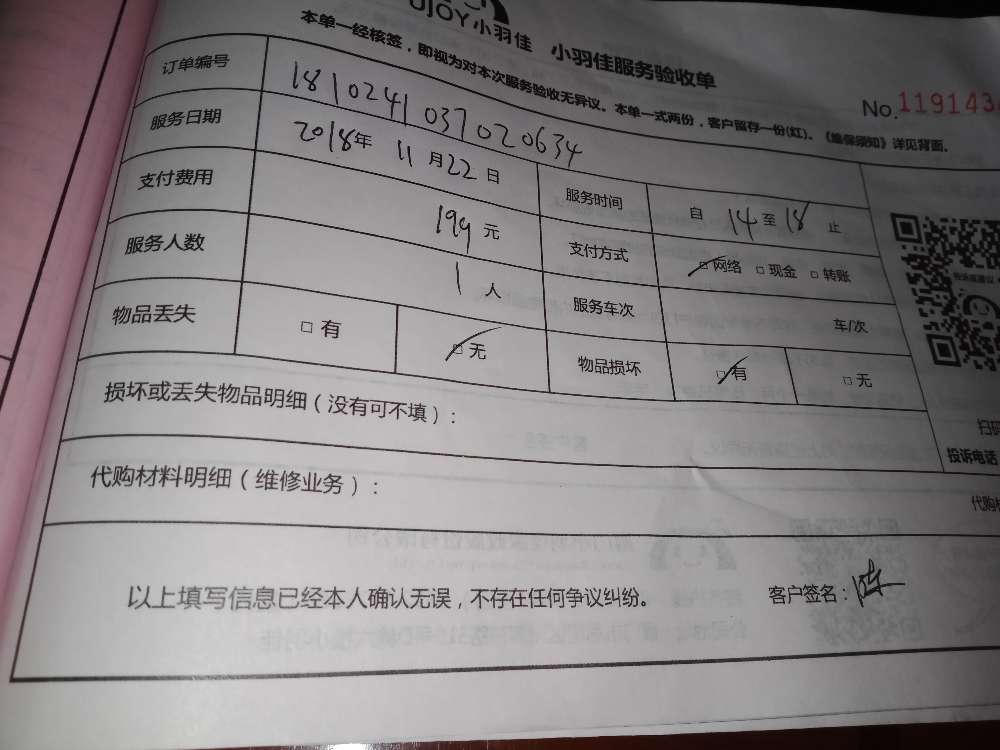 UJOY小羽佳 小羽佳服务验收单
本单一经核签，即视为对本次服务验收无异议。本单一式两份，客户留存一份(红)。《维保须知》详见背面。
No.119143
订单编号 1810241037020634
服务日期 2018年 11月22日 服务时间 自 14 至 18 止
支付费用 199元 支付方式 □网络 □现金 □转账
服务人数 1人 服务车次 车/次
物品丢失 □有 □无 物品损坏 □有 □无
损坏或丢失物品明细（没有可不填）：
投诉电话
代购材料明细（维修业务）：
代购
以上填写信息已经本人确认无误，不存在任何争议纠纷。 客户签名：